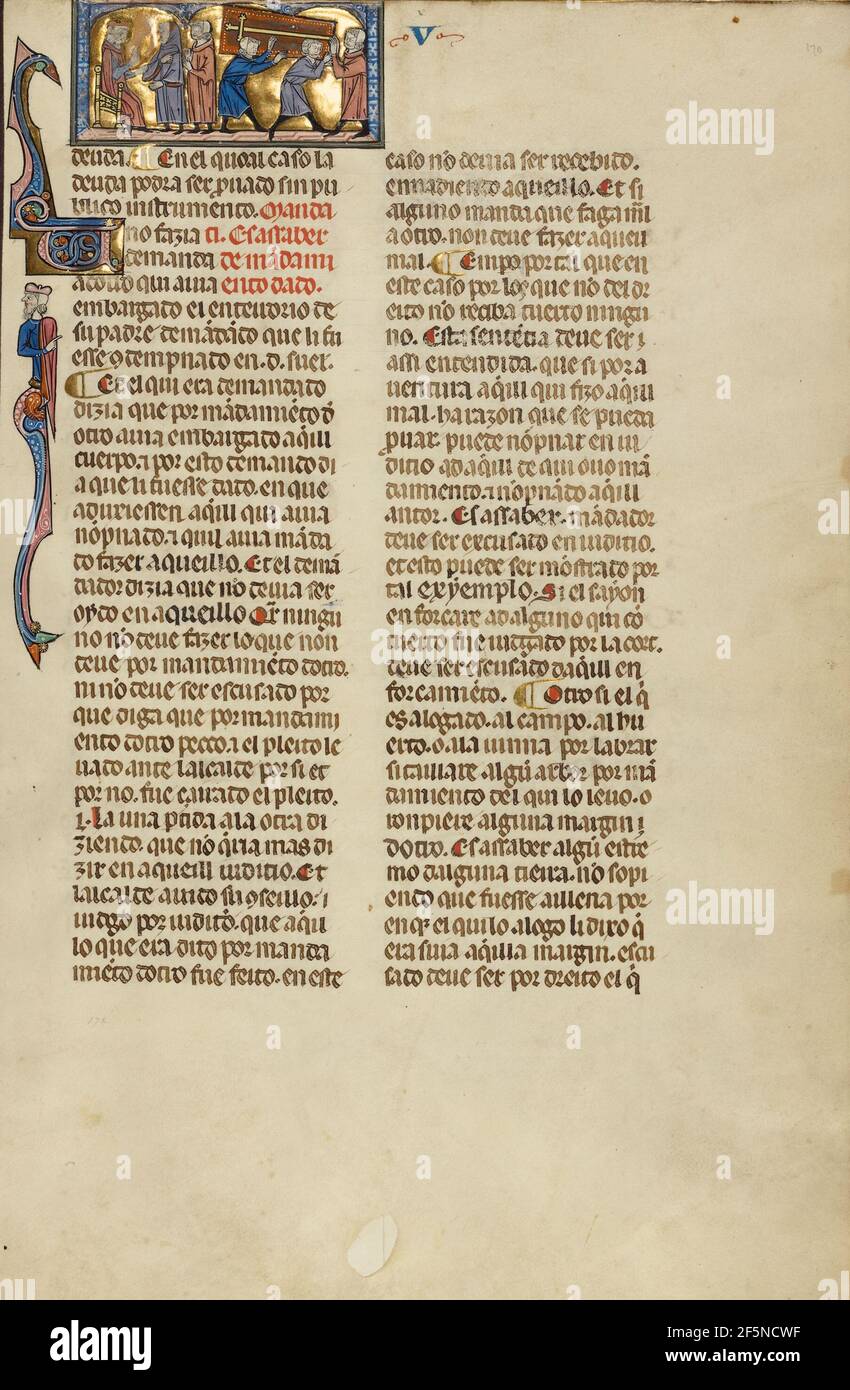 V
170
deuda. En el quoal caso la
deuda podra ser prouado sin pu
blico instrumento. Manda
no fazia ti. Es assaber
demanda de mādami
ento dado.
embargado el enterrorio de
su padre demādādo que li fu
esse 9dempnado en .D. suel.
Et el qui era demandado
dizia que por mādamiēto d
otro auia embargado aqill
cuerpo. ⁊ por esto demando di
a que li fuesse dado. en que
aduriessen aqill qui auia
⁊ quil auia māda
do fazer aqueillo. Et el demā
dador dizia que no deuia ser
oydo en aqueillo. Qr ningu
no nō deue fazer lo que non
deue por mandamiēto dotro.
ni nō deue ser escusado por
que diga que por mandami
ento dotro pecco. ⁊ el pleito le
uado ante lalcalde por si et
por no. fue çarrado el pleito.
⁊. La una ptida a la otra di
ziendo. que nō qria mas di
zir en aqueill iuditio. Et
lalcalde auido su 9seillo. ⁊
iudgo por iuditō. que aqi
lo que era dito por manda
miēto dotro fue feito. en este
caso nō deuia ser recebido.
ennadiendo aqueillo. Et si
alguno manda que faga mal
a otro. non deue fazer aqueu
mal. Empo por tal que en
este caso por los que nō del dr
eito nō reciba tuerto ningu
no. Esta sentētia deue ser ⁊
assi entendida. que si por a
uentura aqill qui fizo aqill
mal. ha razon que se pueda
prouar. puede nōpnar en iu
ditio ad aqill de qui ouo mā
damiento. ⁊ nōpnādo aqill
autor. Es assaber. mādador
deue ser excusado en iuditio.
et esto puede ser mōstrado por
tal exyemplo. Si el sayon
enforcare ad alguno qui cō
tuerto fue iudgado por la cort.
deue ser escusado daqill en
forcamiēto. Otro si el q̄
es alogado. al campo. al hu
erto. o. a la uinna por labrar
si taillare algū arbor por mā
damiento del qui lo leuo. o
ronpiere alguna margin ⁊
dotro. Es assaber algū estre
mo dalguna tierra. nō sopi
endo que fuesse aillena por
en qͣ el qui lo alogo li dixo q̄
era suia aqilla margin. escu
sado deue ser por dreito el q̄
alamy
Image ID: 2F5NCWF
www.alamy.com